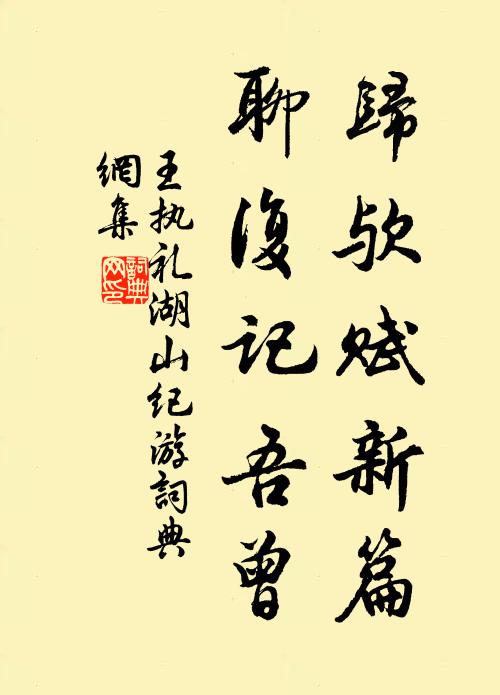 歸歟賦新篇
聊復記吾曾
王执礼湖山纪游詞典
網集
詞典
网印